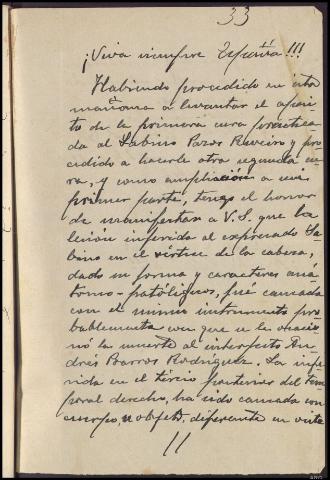 33
¡Viva siempre España!!!
Habiendo procedido en esta
mañana a levantar el aposi-
to de la primera cura practica-
da al Sabino Pazos Raveiro y pro-
cedido a hacerle otra segunda cu-
ra, y como ampliación a mi
primer parte, tengo el honor
de manifestar a V.S. que la
lesión inferida al expresado Sa-
bino en el vértice de la cabeza,
dado su forma y caracteres ana-
tomo-patológicos, fué causada
con el mismo instrumento pro-
bablemente con que se le ocasio-
nó la muerte al interfecto An-
drés Barros Rodríguez. La infe-
rida en el tércio posterior del tem-
poral derecho, ha sido causada con
cuerpo, u objeto, diferente en este
//